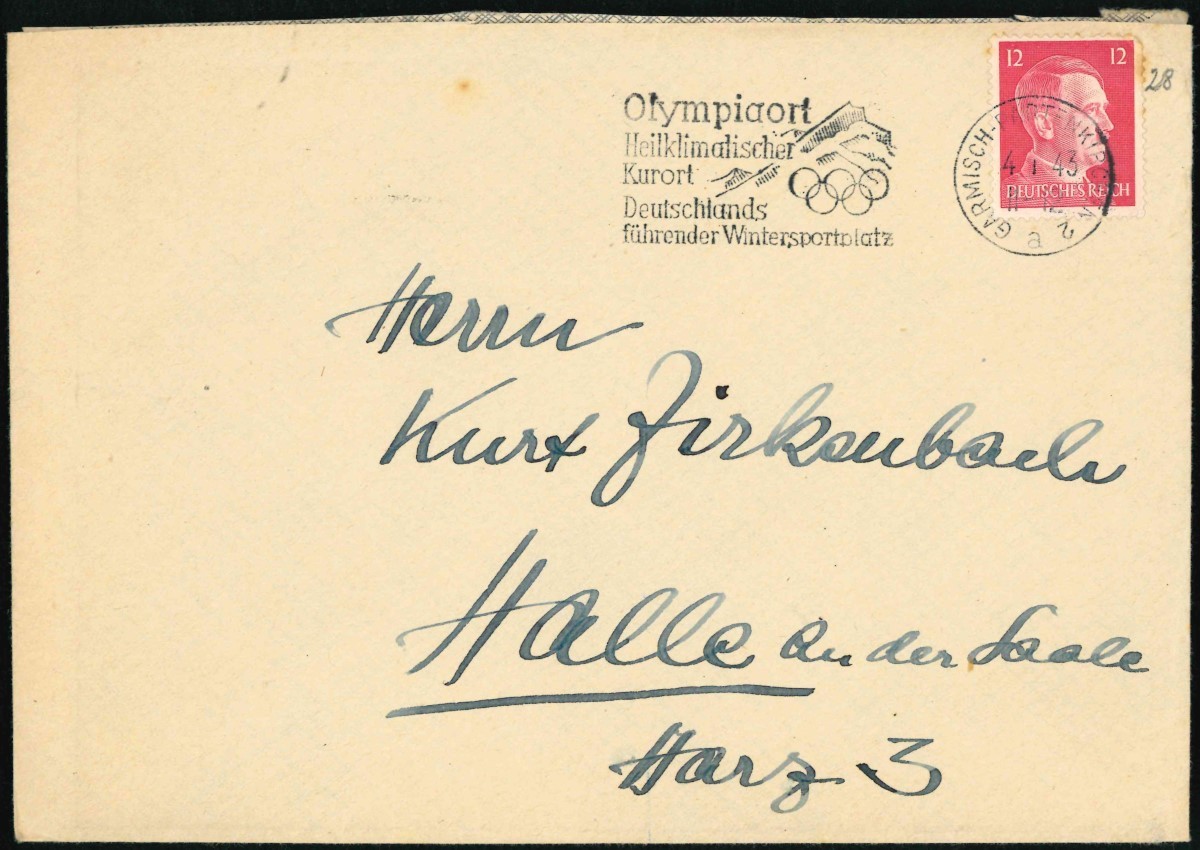 12 12
28
DEUTSCHES REICH
GARMISCH-PARTENKIRCHEN 2
4.1.43
a
Olympiaort
Heilklimatischer
Kurort
Deutschlands
führender Wintersportplatz
Herrn
Kurt Zirkenbach
Halle an der Saale
Harz 3